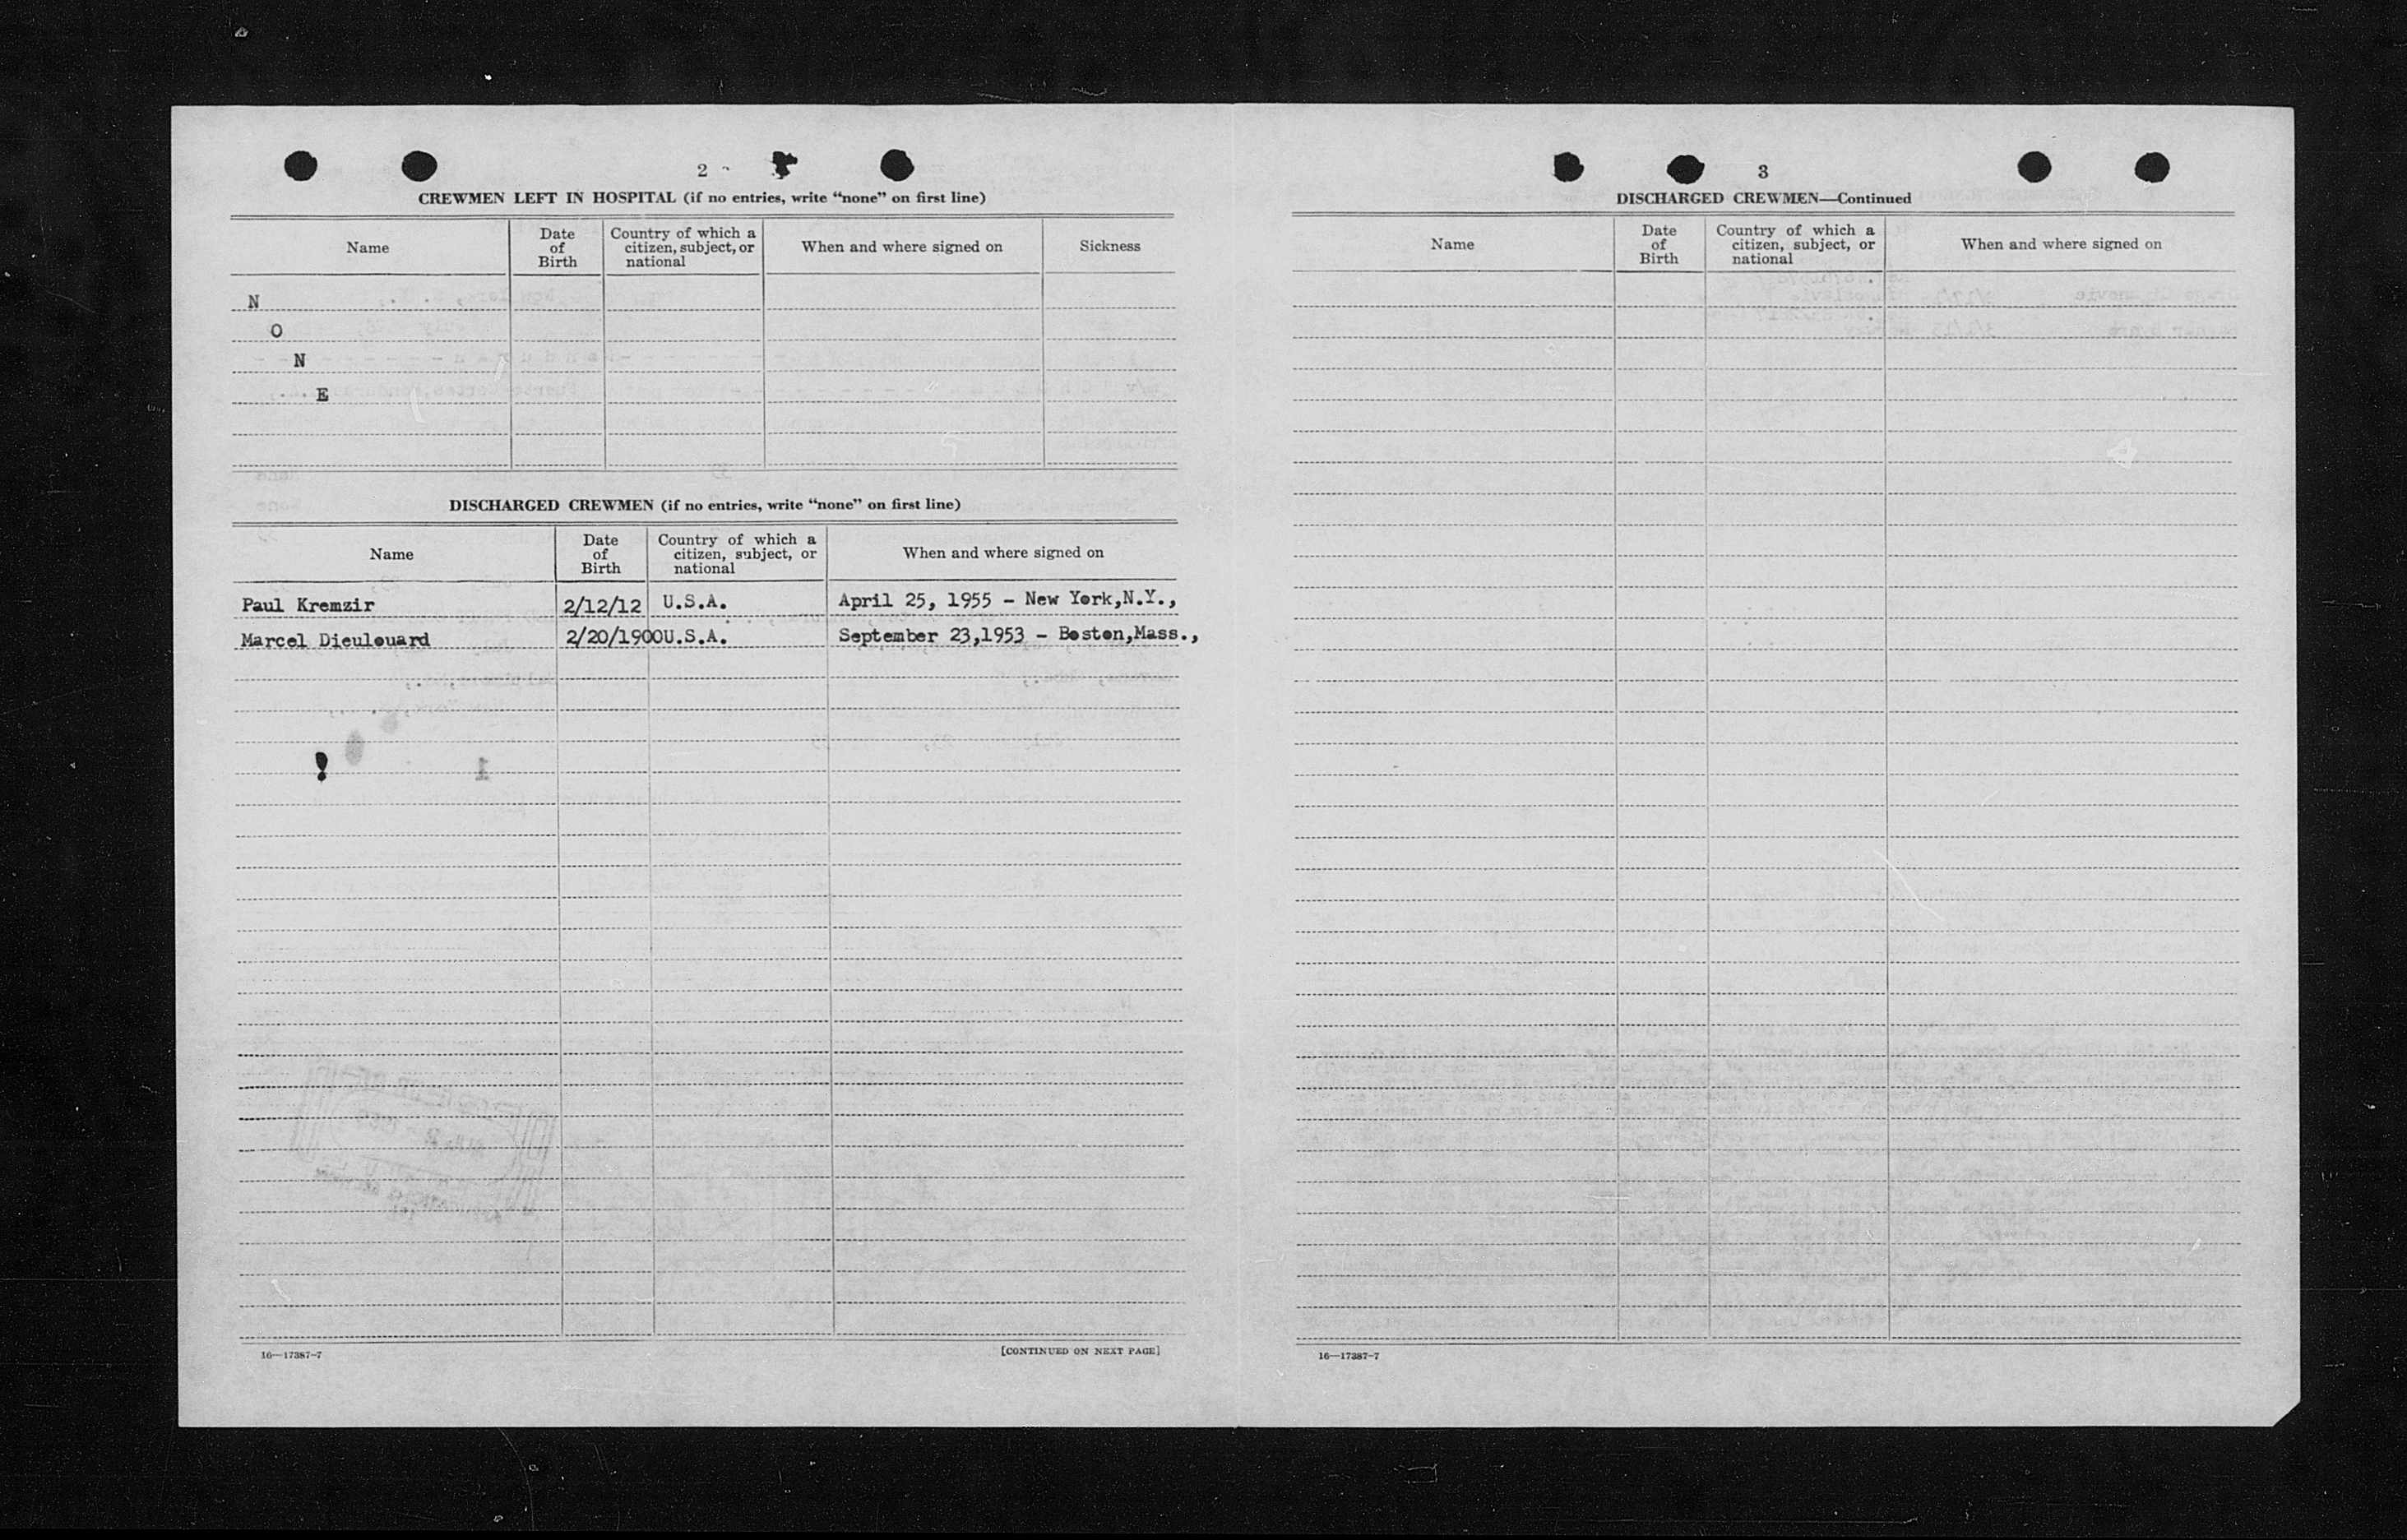 2
CREWMEN LEFT IN HOSPITAL (if no entries, write “none” on first line)
Name
Date of Birth
Country of which a citizen, subject, or national
When and where signed on
Sickness
N
O
N
E
DISCHARGED CREWMEN (if no entries, write “none” on first line)
Name
Date of Birth
Country of which a citizen, subject, or national
When and where signed on
Paul Kremzir 2/12/12 U.S.A. April 25, 1955 - New York,N.Y.,
Marcel Dieulouard 2/20/1900 U.S.A. September 23,1953 - Boston,Mass.,
1
16—17387-7
[CONTINUED ON NEXT PAGE]
3
DISCHARGED CREWMEN—Continued
Name
Date of Birth
Country of which a citizen, subject, or national
When and where signed on
16—17387-7